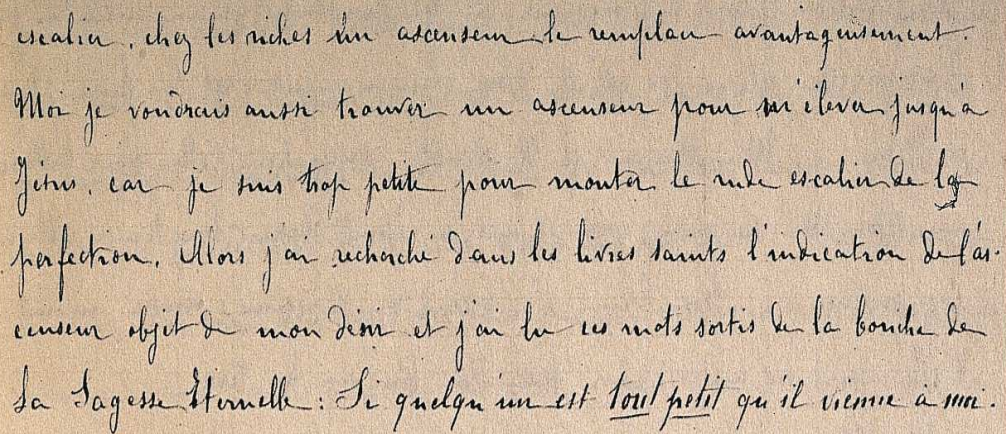 escalier, chez les riches un ascenseur le remplace avantageusement.
Moi je voudrais aussi trouver un ascenseur pour m'élever jusqu'à
Jésus, car je suis trop petite pour monter le rude escalier de la
perfection. Alors j'ai recherché dans les livres saints l'indication de l'as-
censeur objet de mon désir et j'ai lu ces mots sortis de la bouche de
La Sagesse Eternelle : Si quelqu'un est tout petit qu'il vienne à moi.